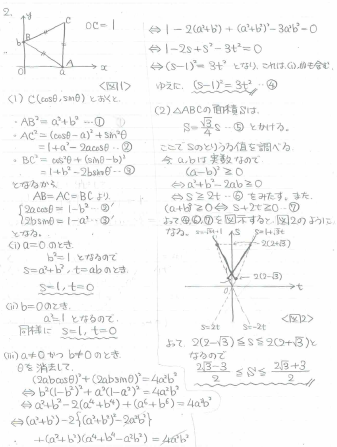 2.
y
C
B
b
O
a
A
x
OC=1
<図1>
(1) C(cosθ, sinθ) とおくと、
・AB²=a²+b² …①
・AC²=(cosθ-a)²+sin²θ
=1+a²-2acosθ …②
・BC²=cos²θ+(sinθ-b)²
=1+b²-2bsinθ …③
となるから
AB=AC=BC より
2acosθ=1-b² …②'
2bsinθ=1-a² …③'
となる。
(i) a=0 のとき、
b²=1 となるので
s=a²+b², t=ab のとき
s=1, t=0
(ii) b=0 のとき、
a²=1 となるので、
同様に s=1, t=0
(iii) a≠0 かつ b≠0 のとき
θを消去して、
(2abcosθ)²+(2absinθ)²=4a²b²
⇔ b²(1-b²)²+a²(1-a²)²=4a²b²
⇔ a²+b²-2(a⁴+b⁴)+(a⁶+b⁶)=4a²b²
⇔ (a²+b²)-2{(a²+b²)²-2a²b²}
+(a²+b²)(a⁴+b⁴-a²b²)=4a²b²
⇔ 1-2(a²+b²)+(a²+b²)²-3a²b²=0
⇔ 1-2s+s²-3t²=0
⇔ (s-1)²=3t² となり、これは(i),(ii)も含む。
ゆえに、(s-1)²=3t² …④
(2) △ABCの面積Sは、
S=√3/4 s …⑤ とかける。
ここでsのとりうる値を調べる。
今 a,bは実数なので
(a-b)²≧0
⇔ a²+b²-2ab≧0
⇔ s≧2t …⑥ をみたす。また
(a+b)²≧0 ⇔ s+2t≧0 …⑦
よって④,⑥,⑦を図示すると、図2のように
なる。
s=-√3t+1
s
s=1+√3t
2(2+√3)
2(2-√3)
O
t
s=2t
s=-2t
<図2>
よって、2(2-√3)≦s≦2(2+√3) と
なるので
2√3-3/2 ≦ S ≦ 2√3+3/2